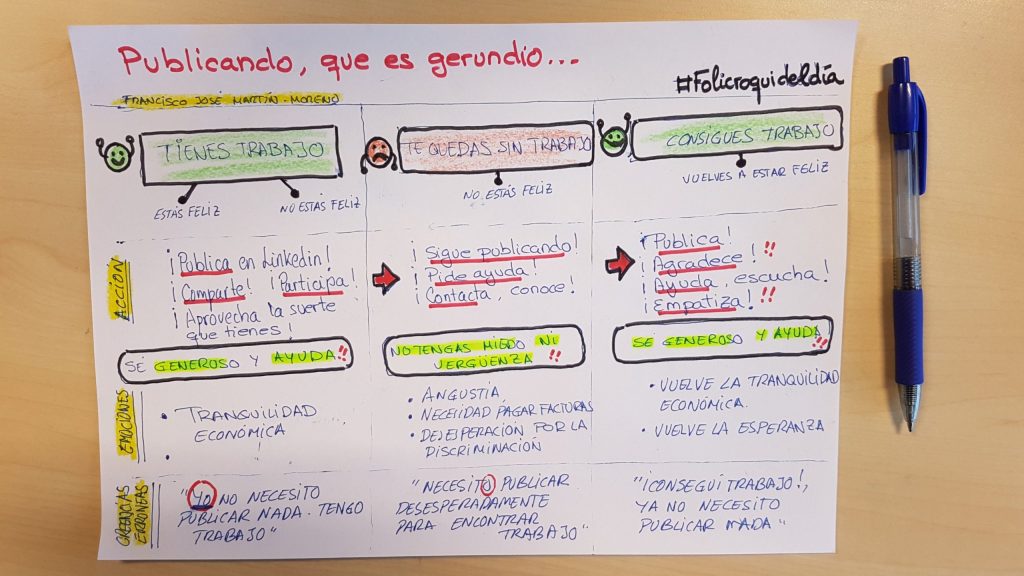 Publicando, que es gerundio...
#Folicroquideldía
FRANCISCO JOSÉ MARTÍN-MORENO
TIENES TRABAJO
ESTÁS FELIZ
NO ESTAS FELIZ
TE QUEDAS SIN TRABAJO
NO ESTÁS FELIZ
CONSIGUES TRABAJO
VUELVES A ESTAR FELIZ
ACCIÓN
¡Publica en Linkedin!
¡Comparte! ¡Participa!
¡Aprovecha la suerte
que tienes!
SÉ GENEROSO Y AYUDA!!
¡Sigue publicando!
¡Pide ayuda!
¡Contacta, conoce!
NO TENGAS MIEDO NI
VERGÜENZA !!
¡Publica!
¡Agradece! !!
¡Ayuda, escucha!
¡Empatiza! !!
SÉ GENEROSO Y AYUDA!!
EMOCIONES
• TRANQUILIDAD
ECONÓMICA
•
• ANGUSTIA,
• NECESIDAD PAGAR FACTURAS
• DESESPERACIÓN POR LA
DISCRIMINACIÓN
• VUELVE LA TRANQUILIDAD
ECONÓMICA.
• VUELVE LA ESPERANZA
CREENCIAS
ERRÓNEAS
"YO NO NECESITO
PUBLICAR NADA. TENGO
TRABAJO"
"NECESITO PUBLICAR
DESESPERADAMENTE
PARA ENCONTRAR
TRABAJO"
"¡CONSEGUÍ TRABAJO!,
YA NO NECESITO
PUBLICAR NADA"